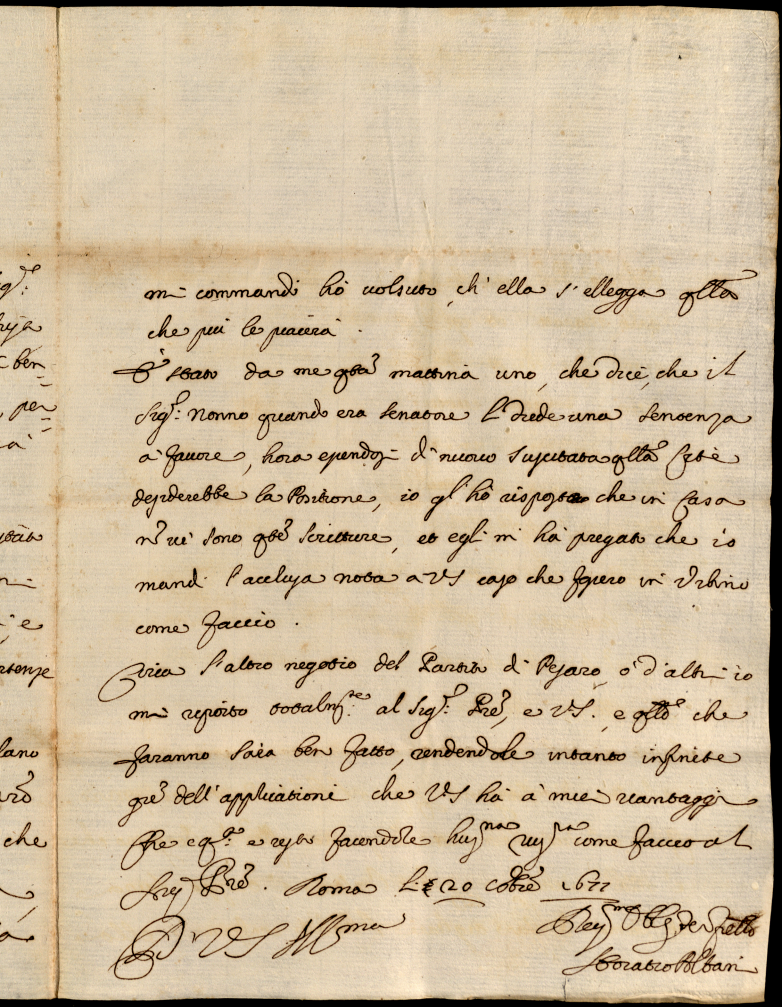 mi commandi hò uolsuto, ch'ella s'ellegga qlla
che più le piacerà.
È stato da me qta mattina uno, che dice, che il
Sigr: Nonno quando era Senatore li diede una sentenza
à favore, hora essendosi di nuovo suscitata qlla lite
desiderebbe la Positione, io gl'hò risposto che in Casa
nō vi sono qte scritture, et egli mi hà pregato che io
mandi l'acclusa nota a VS caso che fosero in Urbino
come faccio.
Circa l'altro negotio del Partito di Pesaro, ò d'altri io
mi reporto totalmte: al Sigr Pre, e VS., e qllo che
faranno sarà ben fatto, rendendole intanto infinite
gre dell'applicationi che VS hà à miei vantaggi
che è qto e resto facendole humma riva come faccio al
Sigr Pre. Roma li 20 8bre 1677
D VS Illma
Devmo Oblg. Ser Frello
Horatio Albani